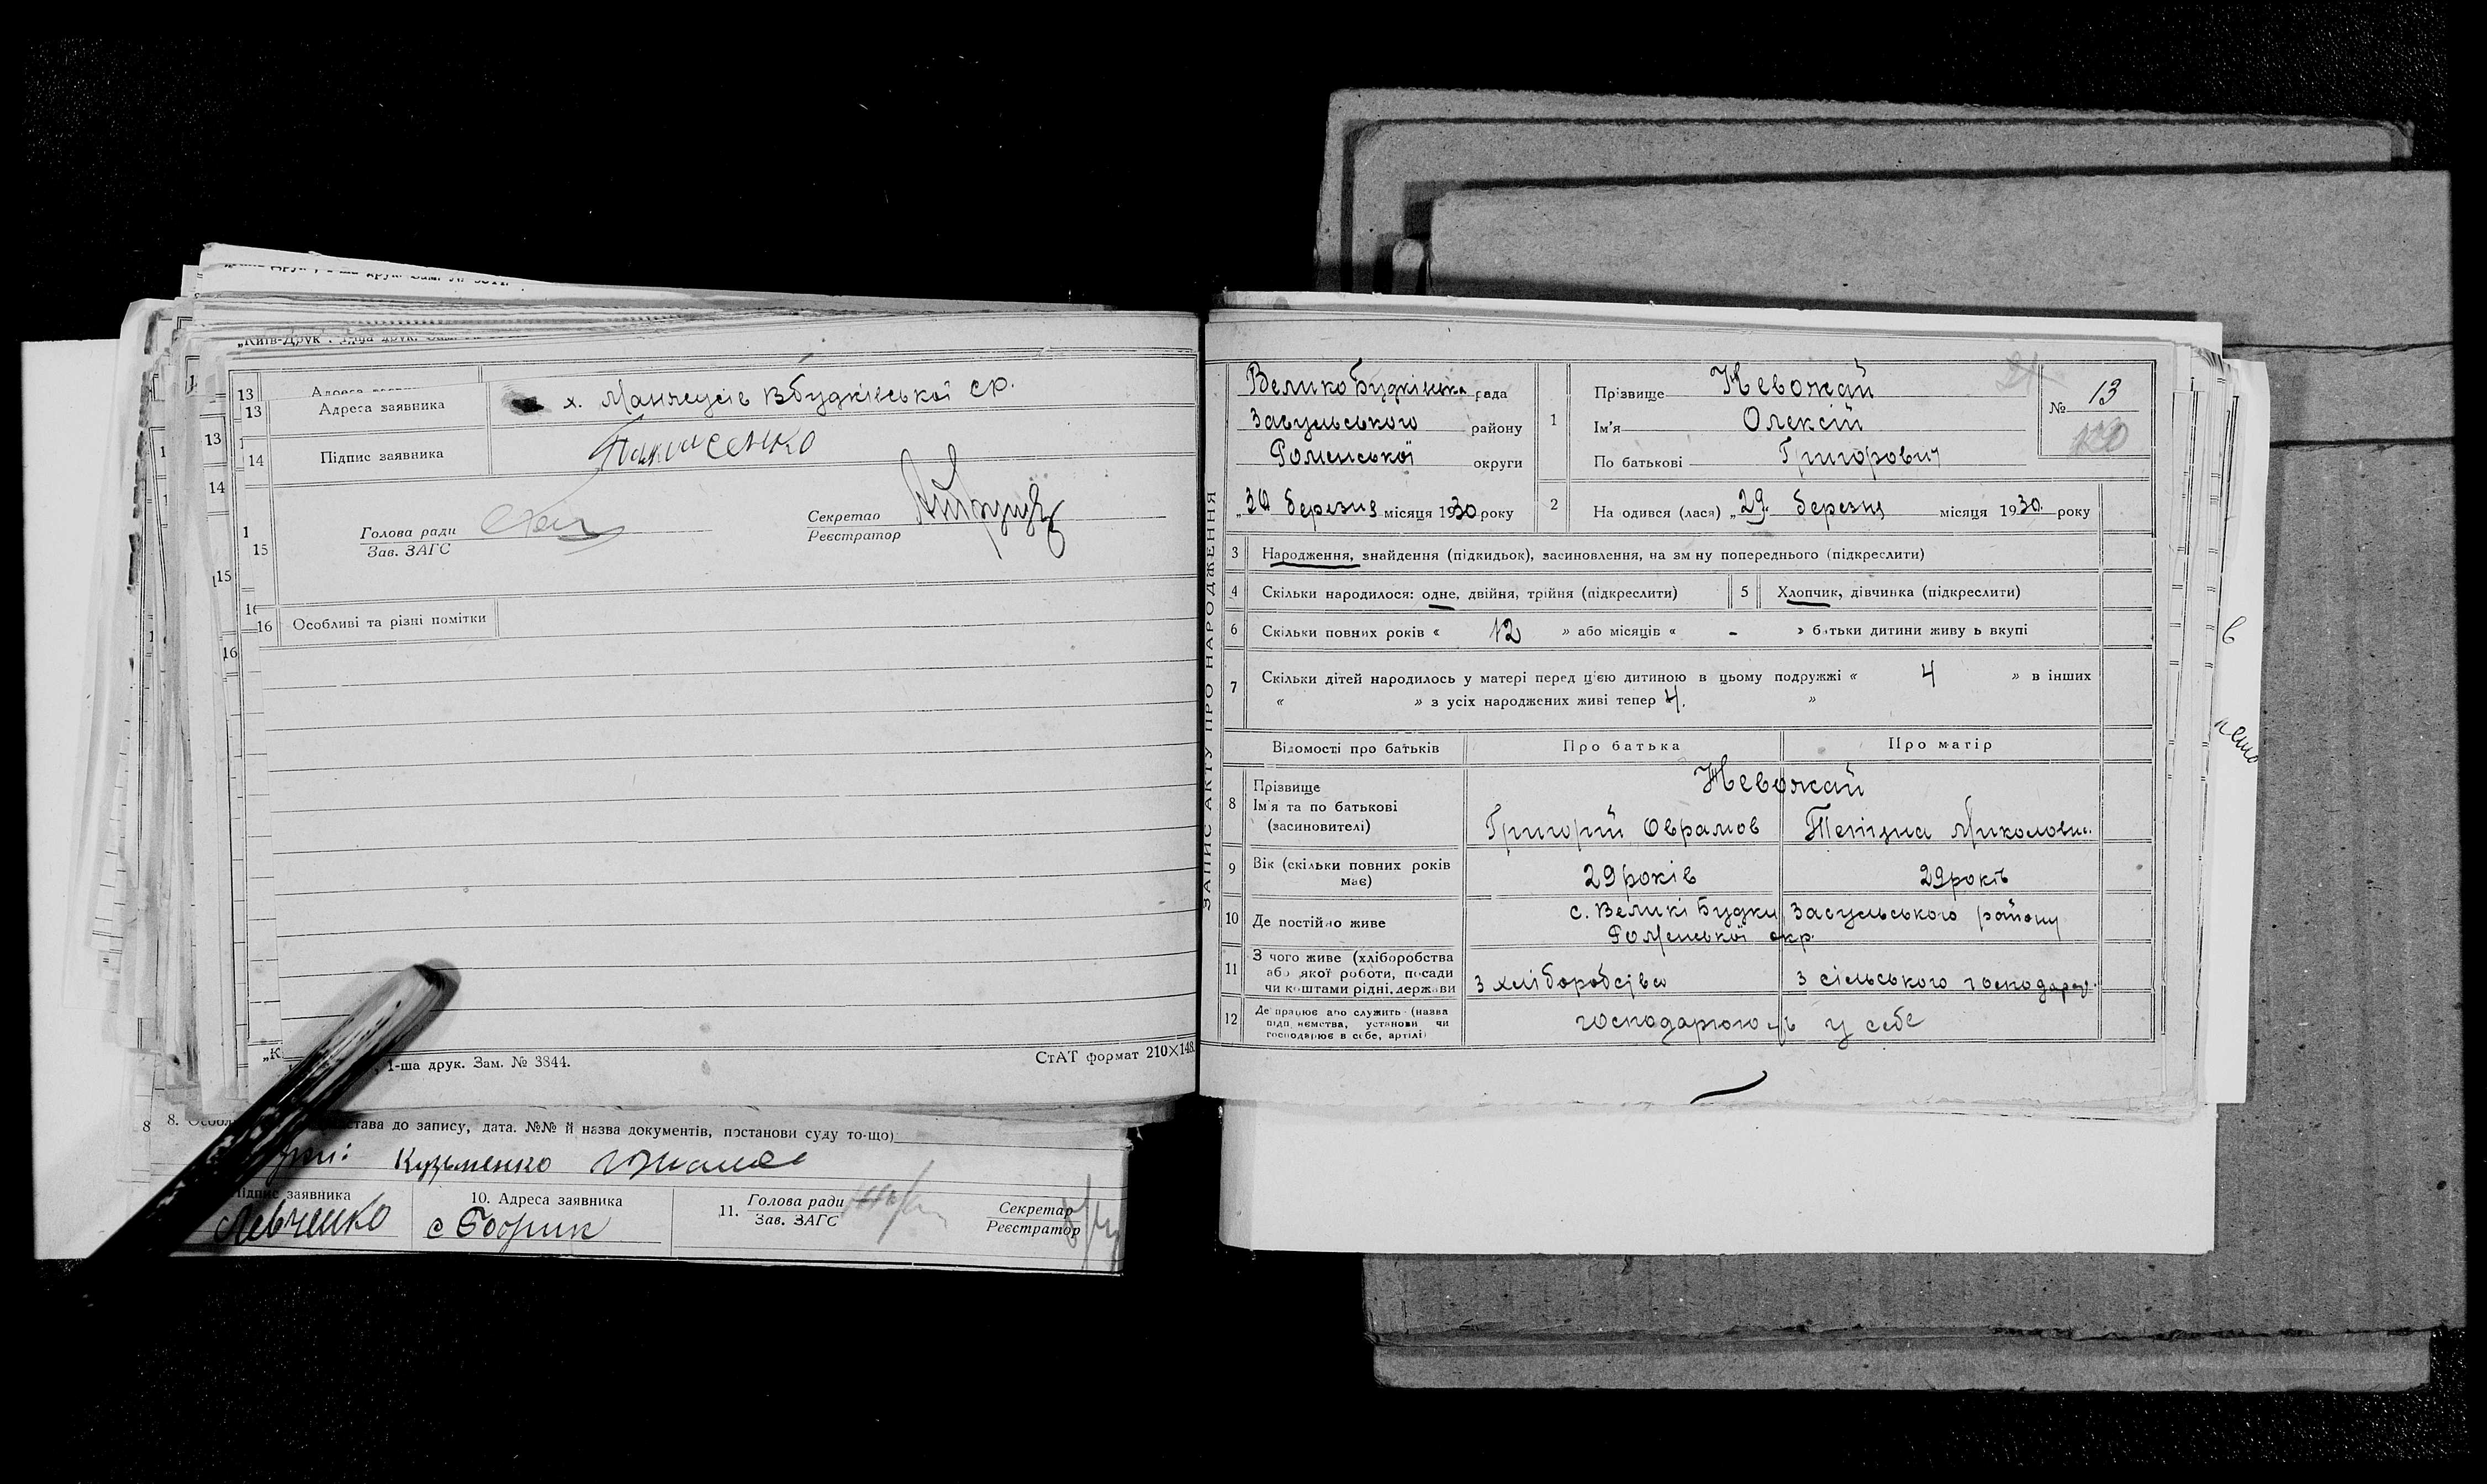 „Київ-Друк". 1-ша друк. Зам. №
13 Адреса заявника х. Манжусів ВБудківської ср.
14 Підпис заявника
15 Голова ради Секретар
Зав. ЗАГС Реєстратор
16 Особливі та різні помітки
1-ша друк. Зам. № 3844. СтАТ формат 210×148.
става до запису, дата. №№ й назва документів, постанови суду то-що)
Кузьменко
Підпис заявника 10. Адреса заявника 11. Голова ради Секретар
Зав. ЗАГС Реєстратор
Левченко
ЗАПИС АКТУ ПРО НАРОДЖЕННЯ
ВеликоБудківська рада
Засульського району
Роменської округи
„30 березня місяця 1930 року
1 Прізвище Невожай
Ім'я Олексій
По батькові Григорович
№ 13
2 На одився (лася) „29. березня місяця 1930. року
3 Народження, знайдення (підкидьок), засиновлення, на зм ну попереднього (підкреслити)
4 Скільки народилося: одне, двійня, трійня (підкреслити) 5 Хлопчик, дівчинка (підкреслити)
6 Скільки повних років « 12 » або місяців « - » батьки дитини живу ь вкупі
7 Скільки дітей народилось у матері перед цією дитиною в цьому подружжі « 4 » в інших
« » з усіх народжених живі тепер 4. »
Відомості про батьків Про батька Про матір
8 Прізвище Невожай
Ім'я та по батькові
(засиновителі) Григорій Оврамов Тетяна Миколовн.
9 Вік (скільки повних років має) 29 років 29 років
10 Де постійно живе с. Великі Будки Засульського району
Роменської окр.
11 З чого живе (хліборобства
або якої роботи, посади
чи коштами рідні, держави з хліборобсвва з сільського господар.
12 Де працює або служить (назва
підп иємства, установи чи
господарює в себе, артілі) господарюють у себе